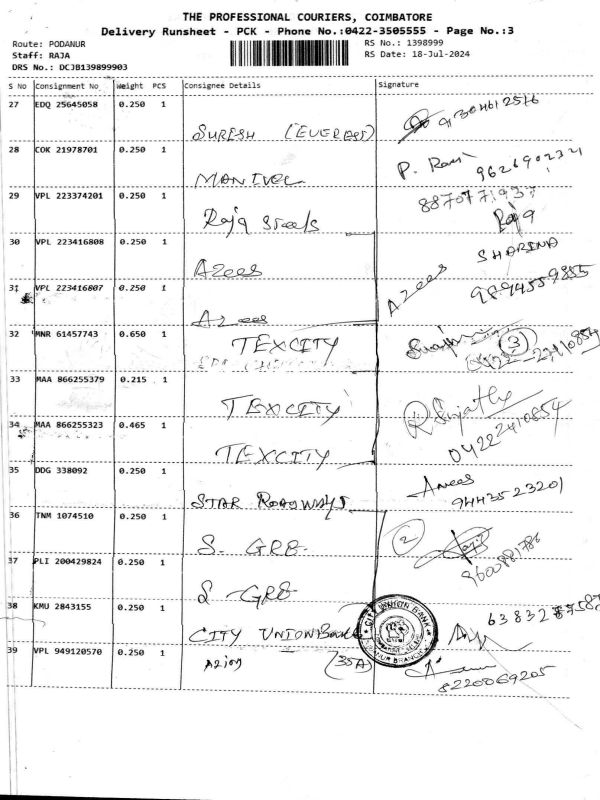 THE PROFESSIONAL COURIERS, COIMBATORE
Delivery Runsheet - PCK - Phone No.:0422-3505555 - Page No.:3
Route: PODANUR
Staff: RAJA
DRS No.: DCJB139899903
RS No.: 1398999
RS Date: 18-Jul-2024
S No Consignment No Weight PCS Consignee Details Signature
27 EDQ 25645058 0.250 1 SURESH (EVEREST)
28 COK 21978701 0.250 1 MANIVEL P. Ravi
29 VPL 223374201 0.250 1 Raja steels 8870771937 Raja
30 VPL 223416808 0.250 1 Azees SHARINA
31 VPL 223416807 0.250 1 Azees Azees 9894559855
32 MNR 61457743 0.650 1 TEXCITY 3
33 MAA 866255379 0.215 1 TEXCITY
34 MAA 866255323 0.465 1 TEXCITY 04222410854
35 DDG 338092 0.250 1 STAR ROADWAYS Anees 9443523201
36 TNM 1074510 0.250 1 S. GRB 2
37 PLI 200429824 0.250 1 S -GRB 9600881786
38 KMU 2843155 0.250 1 CITY UNION BANK CITY UNION BANK
39 VPL 949120570 0.250 1 (35A) 8220069205